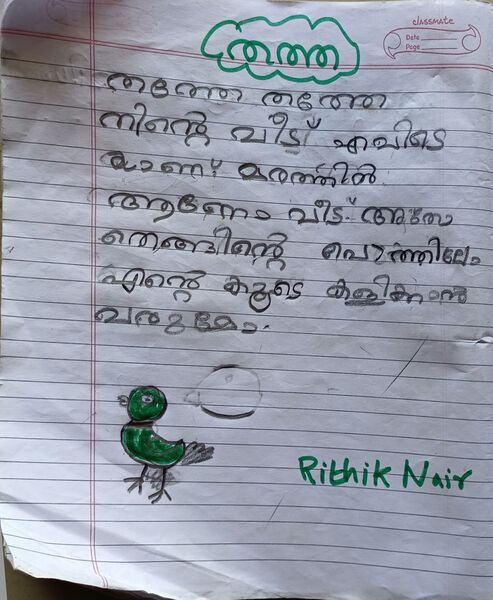 classmate
Date
Page
തത്ത
തത്തേ തത്തേ
നിന്റെ വീട് എവിടെ
യാണ്? മരത്തിൽ
ആണോ വീട് അതോ
തെങ്ങിന്റെ പൊത്തിലോ
എന്റെ കൂടെ കളിക്കാൻ
വരുമോ.
Rithik Nair